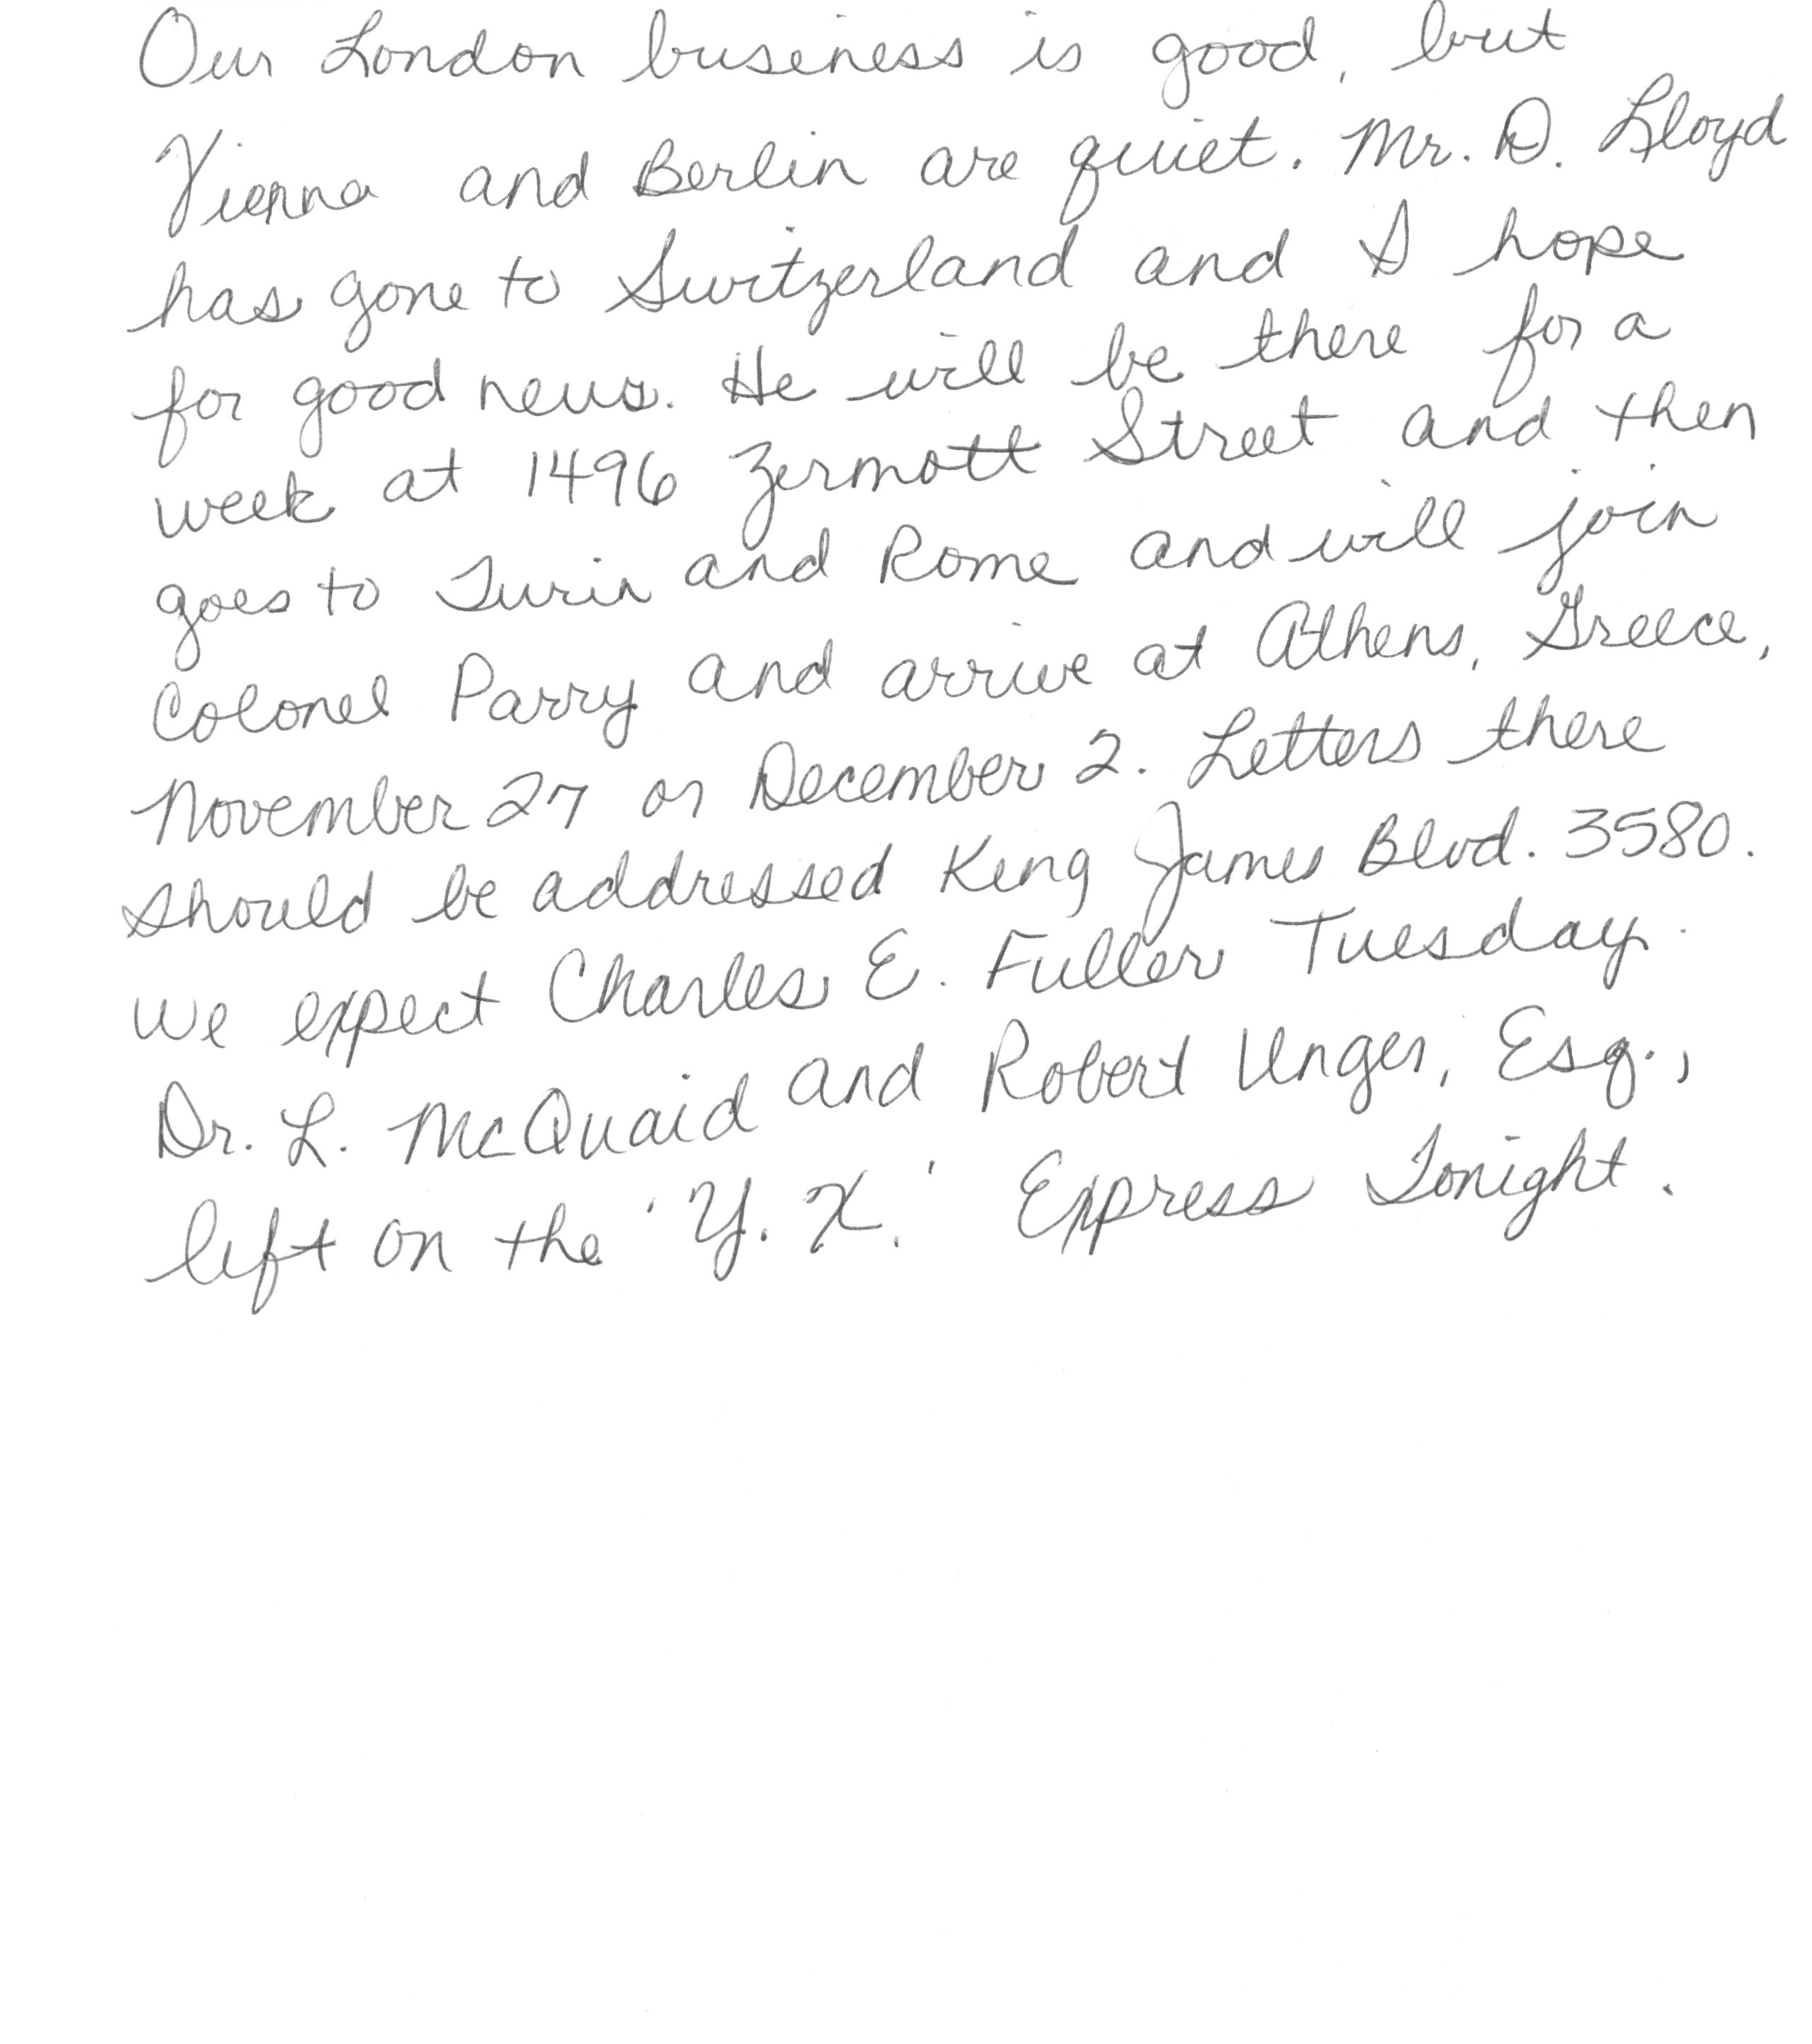 Our London business is good, but
Vienna and Berlin are quiet. Mr. D. Lloyd
has gone to Switzerland and I hope
for good news. He will be there for a
week at 1496 Zermott Street and then
goes to Turin and Rome and will join
Colonel Parry and arrive at Athens, Greece,
November 27 or December 2. Letters there
should be addressed King James Blvd. 3580.
We expect Charles E. Fuller Tuesday.
Dr. L. McQuaid and Robert Unger, Esq.,
left on the 'Y. X.' Express Tonight.